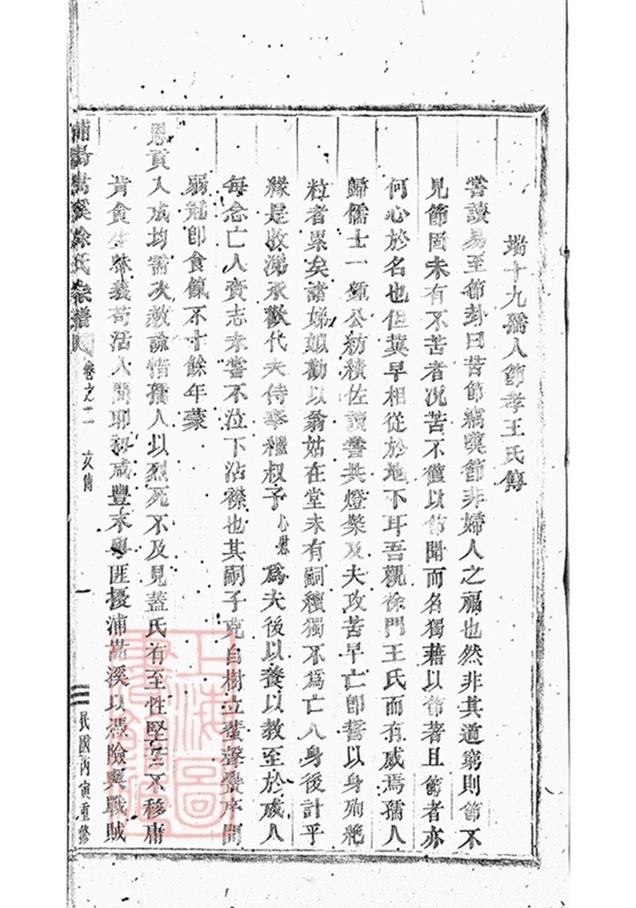 端十九孺人節孝王氏傳
嘗讀易至節卦曰苦節竊嘆節非婦人之福也然非其道窮則節不
見節固未有不苦者况苦不僅以節聞而名獨藉以節著且節者亦
何心於名也但冀早相從於地下耳吾觀徐門王氏而有感焉孺人
歸儒士一種公紡績佐讀嘗共燈檠及夫攻苦早亡卽誓以身殉絶
粒者累矣諸娣姒勸以翁姑在堂未有嗣續獨不爲亡人身後計乎
緣是收涕承歡代夫侍奉繼叔子心 爲夫後以養以教至於成人
每念亡人賫志未嘗不泣下沾襟也其嗣子克自樹立蜚聲黌序聞
弱冠卽食餼不寸餘年蒙
恩貢入成均需次教諭惜孺人以烈死不及見蓋氏有至性堅 不移庸
肯食生 義苟活人間耶初咸豐末粤匪擾浦嵩溪以憑險與戰賊
浦陽嵩溪徐氏宗譜 卷之二 文傳 一 民國丙寅重修
上海圖書館藏